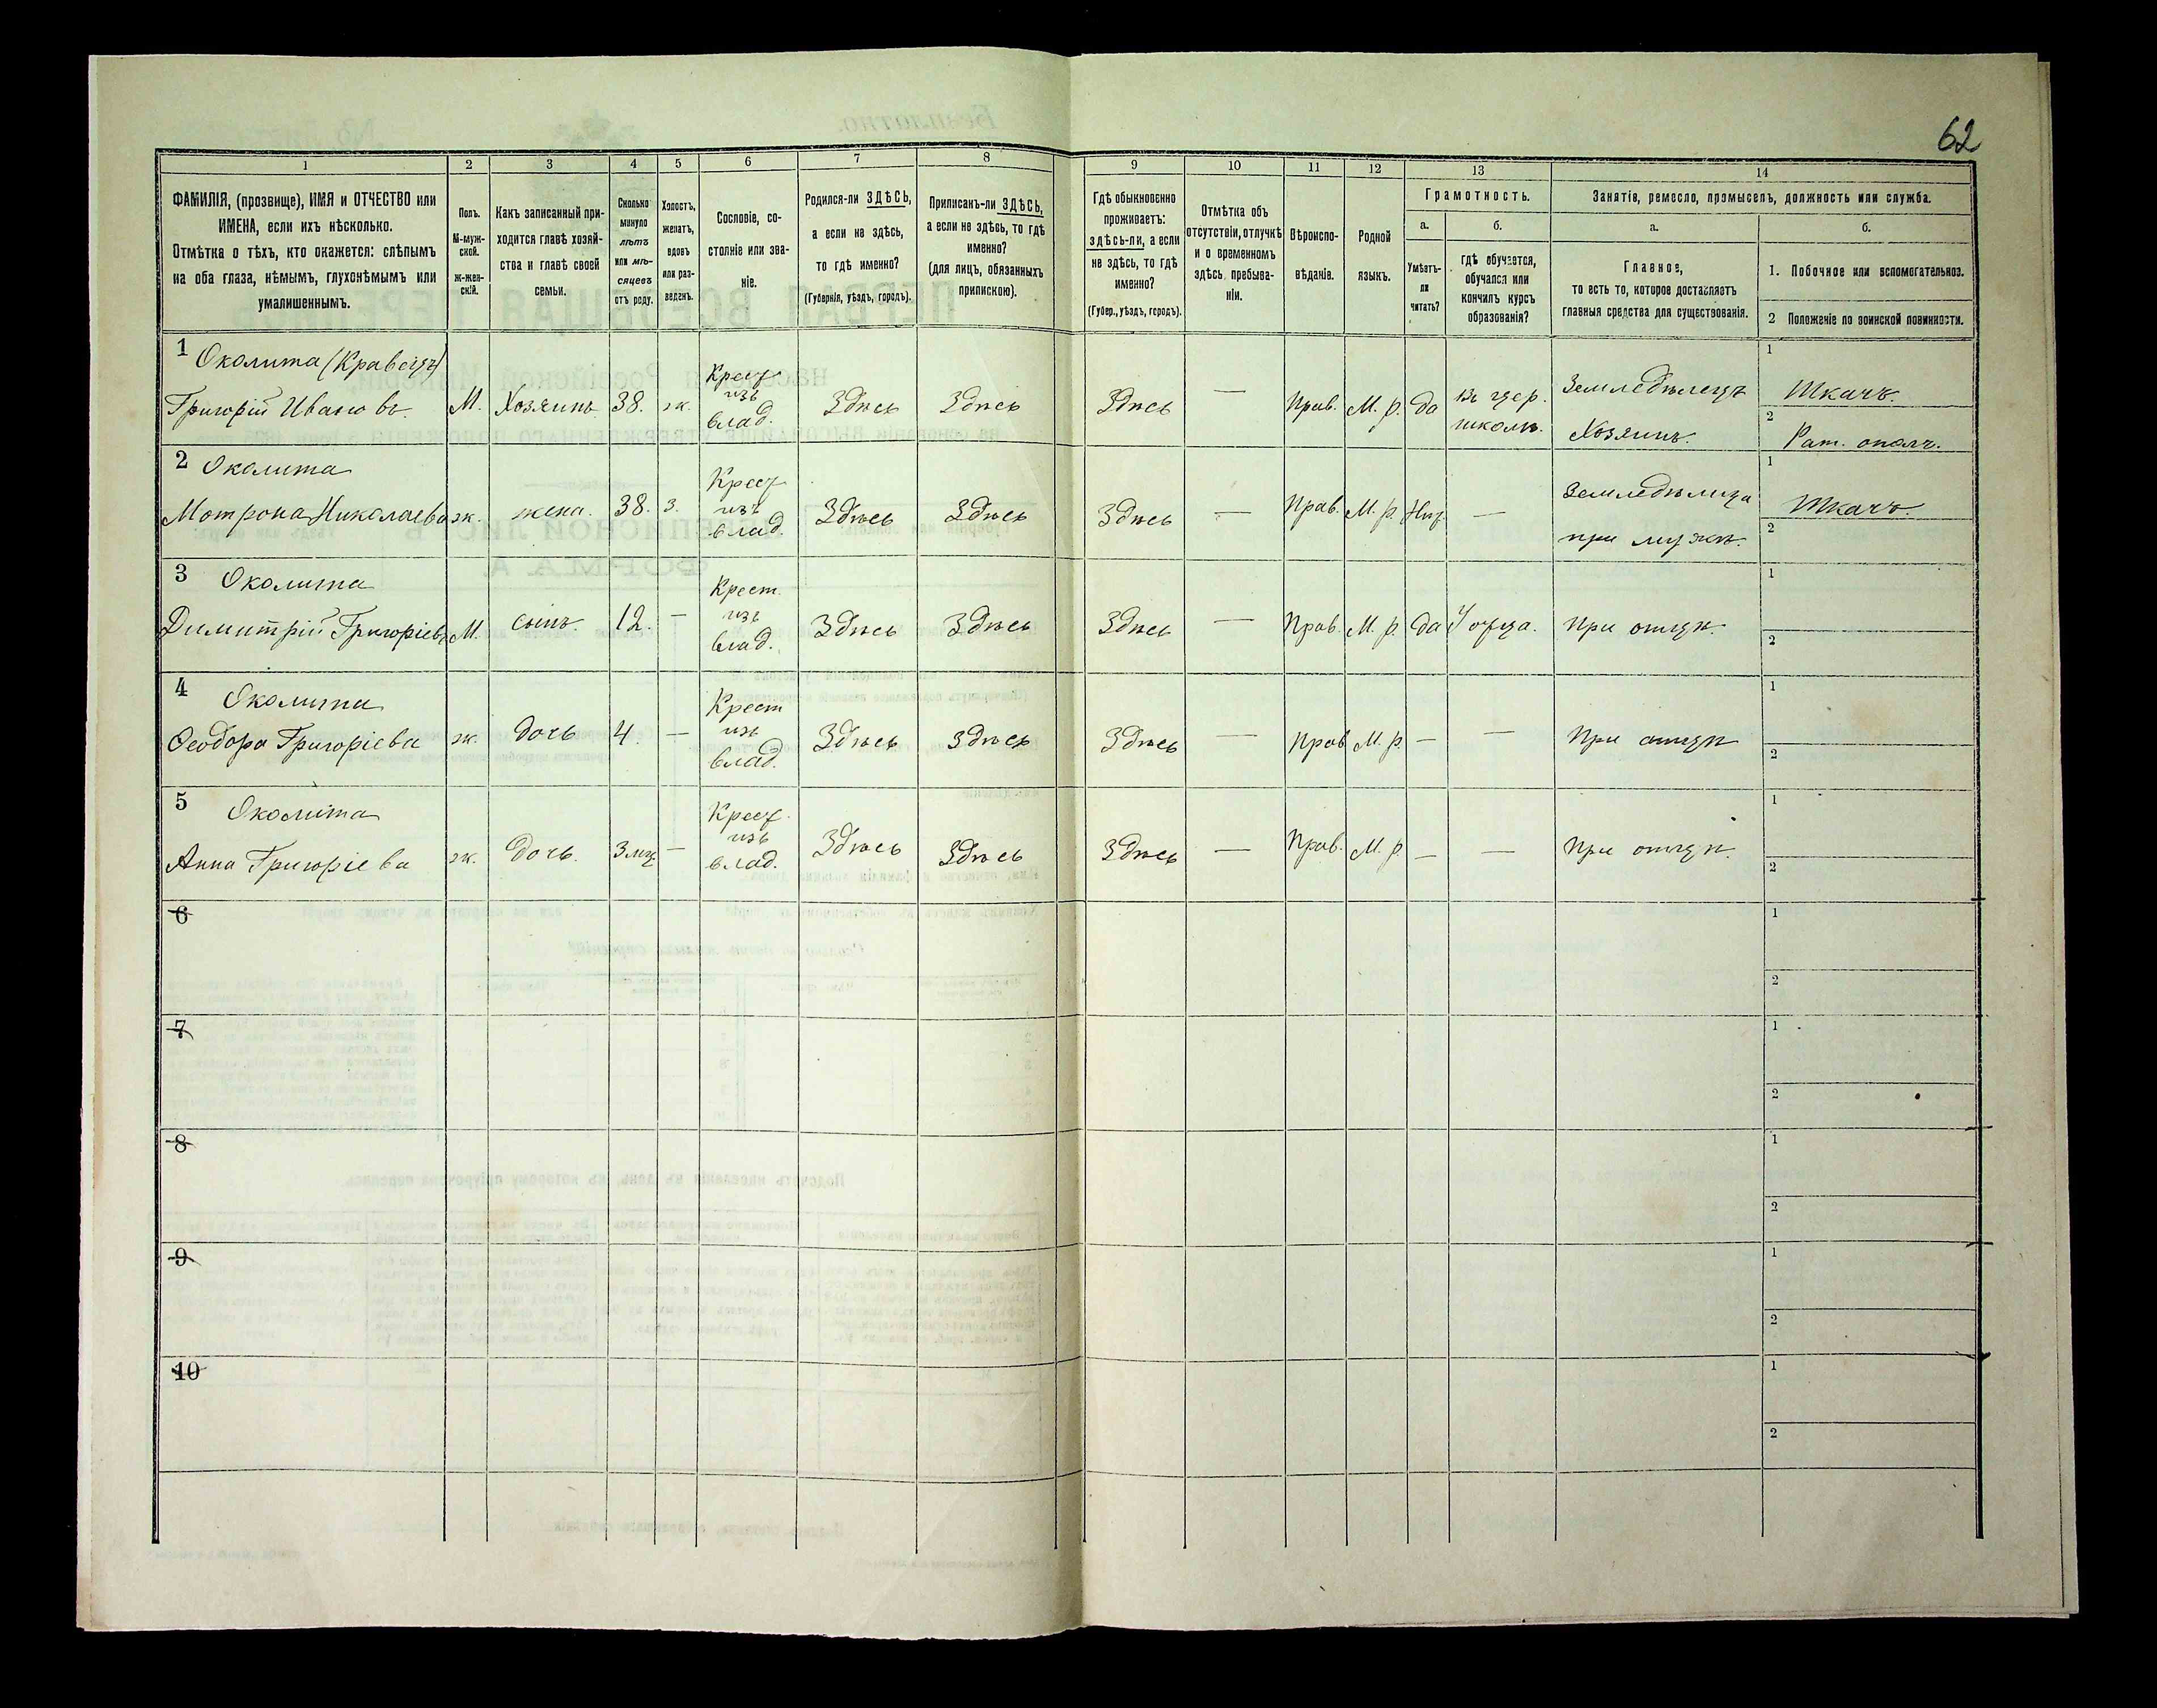 62
1 2 3 4 5 6 7 8 9 10 11 12 13 14
ФАМИЛІЯ, (прозвище), ИМЯ и ОТЧЕСТВО или
ИМЕНА, если ихъ нѣсколько.
Отмѣтка о тѣхъ, кто окажется: слѣпымъ
на оба глаза, нѣмымъ, глухонѣмымъ или
умалишеннымъ.
Полъ.
М-муж-
ской.
ж-жен-
скій.
Какъ записанный при-
ходится главѣ хозяй-
ства и главѣ своей
семьи.
Сколько
минуло
лѣтъ
или мѣ-
сяцевъ
отъ роду.
Холостъ,
женатъ,
вдовъ
или раз-
веденъ.
Сословіе, со-
стояніе или зва-
ніе.
Родился-ли ЗДѢСЬ,
а если не здѣсь,
то гдѣ именно?
(Губернія, уѣздъ, городъ).
Приписанъ-ли ЗДѢСЬ,
а если не здѣсь, то гдѣ
именно?
(для лицъ, обязанныхъ
припискою).
Гдѣ обыкновенно
проживаетъ:
здѣсь-ли, а если
не здѣсь, то гдѣ
именно?
(Губер., уѣздъ, городъ).
Отмѣтка объ
отсутствіи, отлучкѣ
и о временномъ
здѣсь пребыва-
ніи.
Вѣроиспо-
вѣданіе.
Родной
языкъ.
Грамотность.
а.
Умѣетъ-
ли
читать?
б.
гдѣ обучается,
обучался или
кончилъ курсъ
образованія?
Занятіе, ремесло, промыселъ, должность или служба.
а.
Главное,
то есть то, которое доставляетъ
главныя средства для существованія.
б.
1. Побочное или вспомогательное.
2 Положеніе по воинской повинности.
1 Околита (Кравецъ)
Григорій Ивановъ М. Хозяинъ 38. ж. Крест изъ влад. Здѣсь Здѣсь Здѣсь — Прав. М. р. да въ цер. школѣ. Земледѣлецъ Хозяинъ.
1 Ткачъ.
2 Рат. ополч.
2 Околита
Мотрона Николаева ж. жена. 38. з. Крест изъ влад. Здѣсь Здѣсь Здѣсь — Прав. М. р. Нѣт — Земледѣлица при мужѣ.
1 Ткачъ.
2
3 Околита
Димитрій Григоріевъ М. сынъ. 12. — Крест. изъ влад. Здѣсь Здѣсь Здѣсь — Прав. М. р. да У отца. При отцѣ.
1
2
4 Околита
Ѳеодора Григоріева ж. дочь 4. — Крест изъ влад. Здѣсь Здѣсь Здѣсь — Прав М. р. — — При отцѣ
1
2
5 Околита
Анна Григоріева ж. дочь. 3 мц. — Крест. изъ влад. Здѣсь Здѣсь Здѣсь — Прав. М. р. — — При отцѣ.
1
2
6
1
2
7
1
2
8
1
2
9
1
2
10
1
2